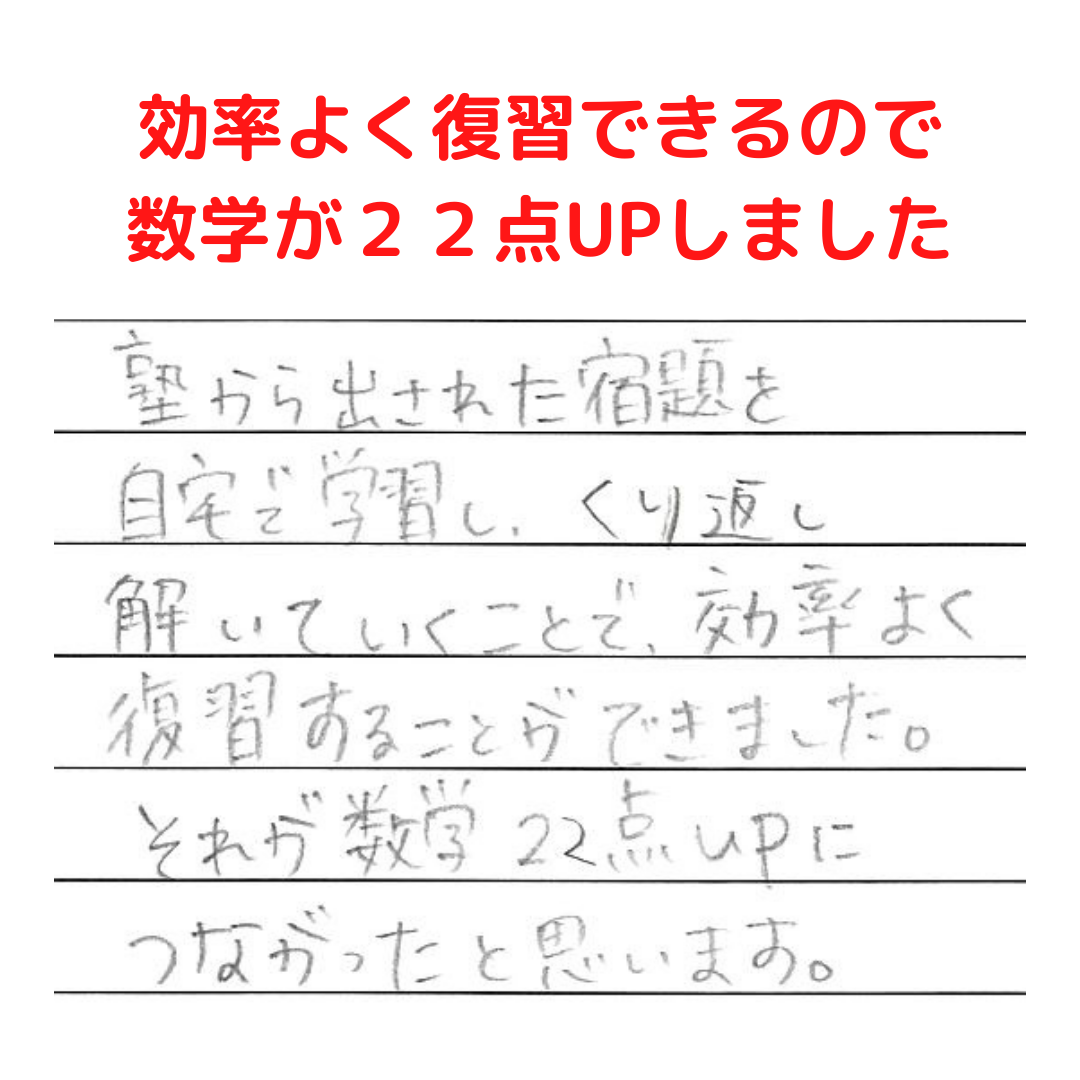 効率よく復習できるので
数学が２２点UPしました
塾から出された宿題を
自宅で学習し、くり返し
解いていくことで、効率よく
復習することができました。
それが数学22点UPに
つながったと思います。